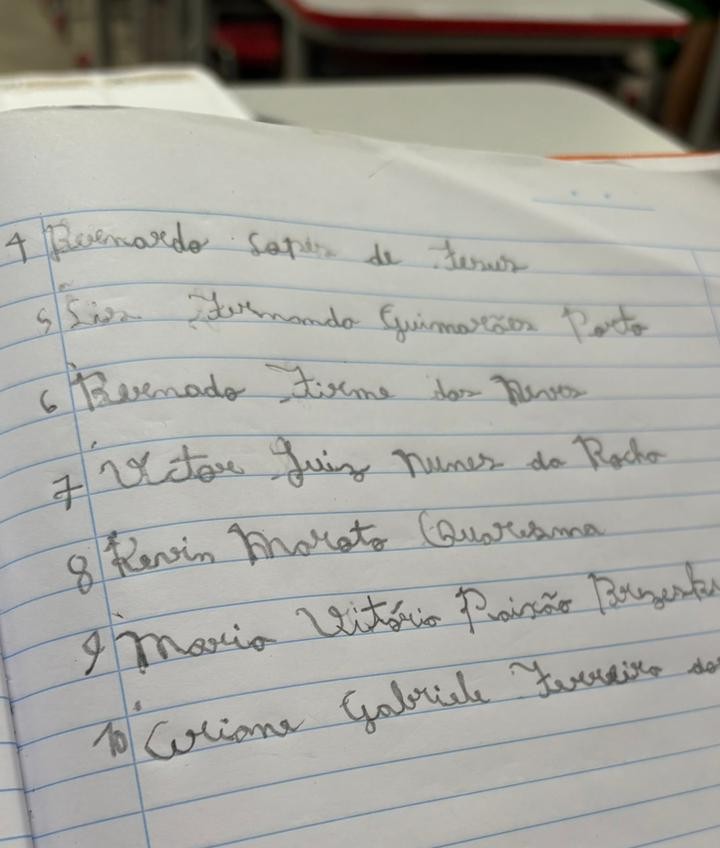 4 Bernardo Lopes de Jesus
5 Fernanda Guimarães Porto
6 Bernado Firme das Neves
7 Victor Luiz Nunes da Rocha
8 Kevin Morato Quaresma
9 Maria Vitória Paixão
10 Gabriele Ferreira dos